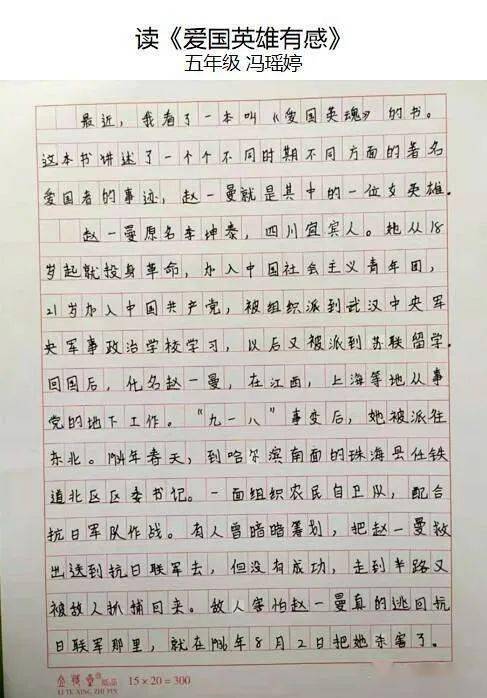 读《爱国英雄有感》
五年级 冯瑶婷
最近，我看了一本叫《爱国英魂》的书。
这本书讲述了一个个不同时期不同方面的著名
爱国者的事迹，赵一曼就是其中的一位女英雄.
赵一曼原名李坤泰，四川宜宾人。她从18
岁起就投身革命，加入中国社会主义青年团，
21岁加入中国共产党，被组织派到武汉中央军
央军事政治学校学习，以后又被派到苏联留学.
回国后，化名赵一曼，在江西，上海等地从事
党的地下工作。“九一八”事变后，她被派往
东北。1934年春天，到哈尔滨南面的珠海县任铁
道北区区委书记。一面组织农民自卫队，配合
抗日军队作战。有人曾暗暗筹划，把赵一曼救
出送到抗日联军去，但没有成功，走到半路又
被敌人抓捕回来。敌人害怕赵一曼真的逃回抗
日联军那里，就在1936年8月2日把她杀害了。
15×20=300